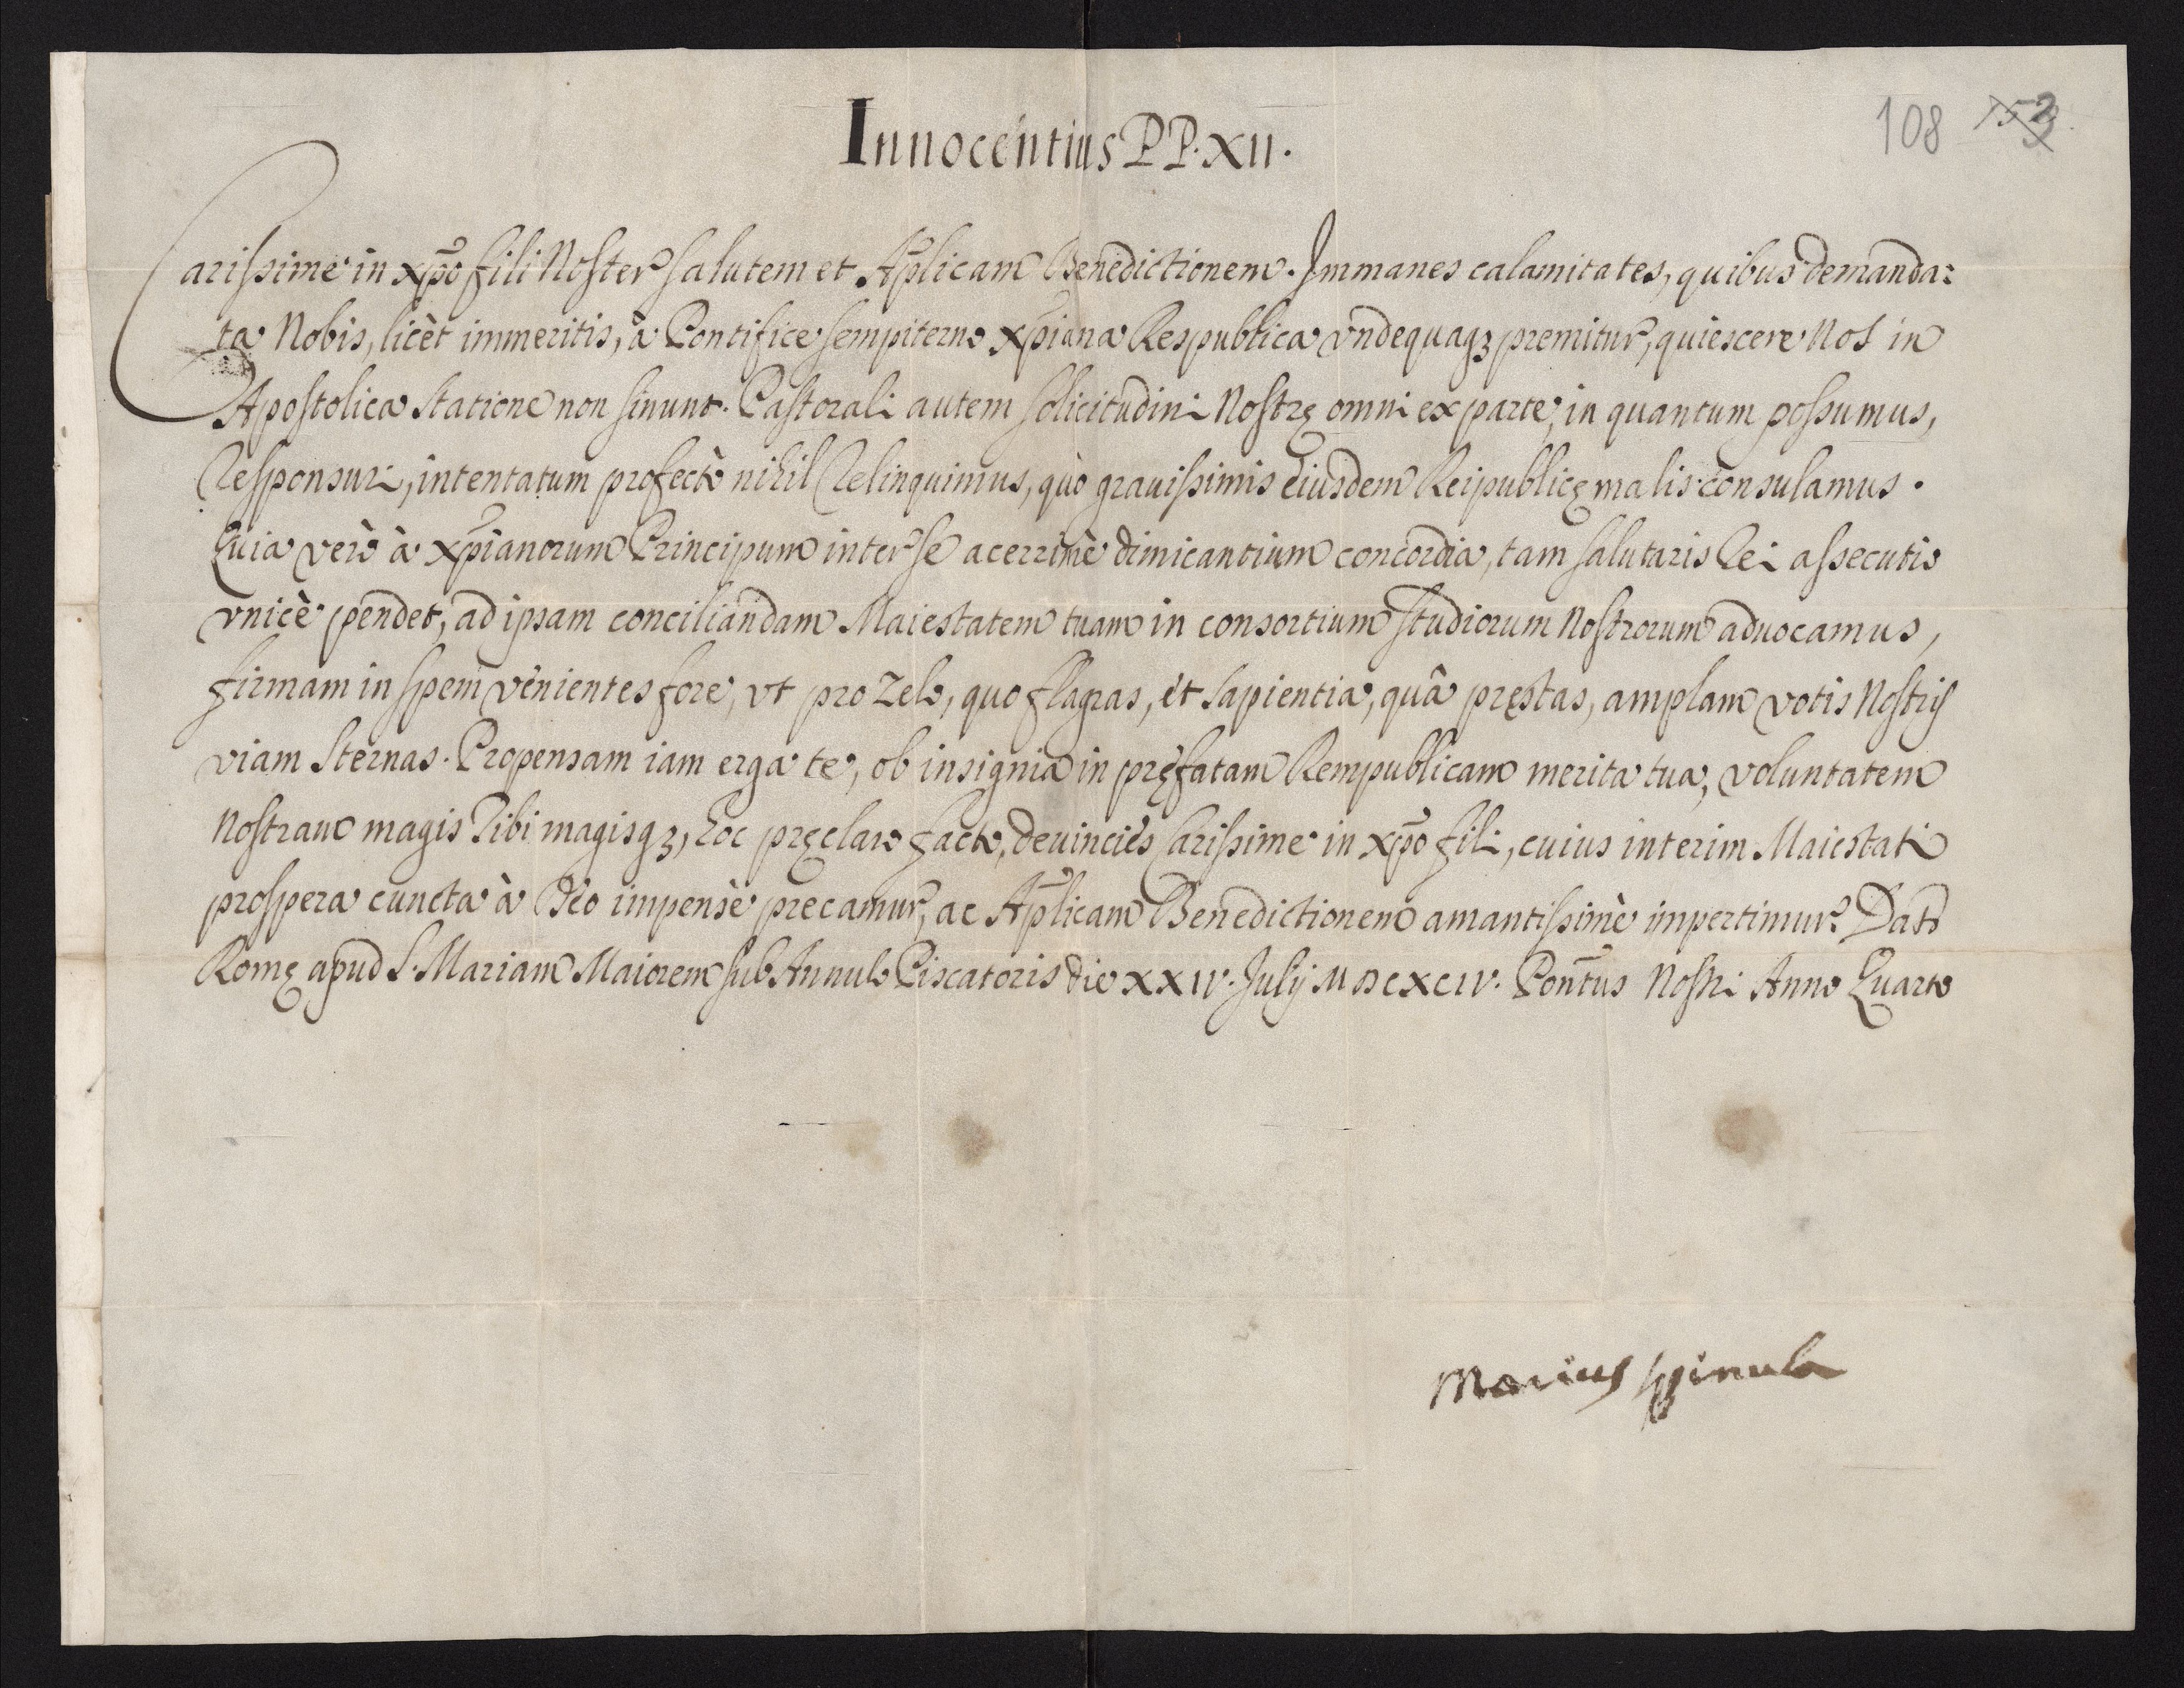 Innocentius PP. XII.
108 152
Carissime in xp̄o fili Noster salutem et Ap̄licam Benedictionem. Immanes calamitates, quibus demanda:
ta Nobis, licèt immeritis, à Pontifice sempiterno xp̄iana Respublica vndequaqȝ premitur, quiescere Nos in
Apostolica statione non sinunt. Pastorali autem solicitudini Nostrę omni ex parte, in quantum possumus,
Responsuri, intentatum profectò nihil Relinquimus, quò grauissimis eiusdem Reipublicę malis consulamus.
Quia verò à xp̄ianorum Principum inter se acerrimè dimicantium concordia, tam salutaris Rei assecutio
vnicè pendet, ad ipsam conciliandam Maiestatem tuam in consortium studiorum Nostrorum aduocamus,
firmam in spem venientes fore, vt pro Zelo, quo flagras, et sapientia, quâ pręstas, amplam votis Nostris
viam sternas. Propensam iam erga te, ob insignia in pręfatam Rempublicam merita tua, voluntatem
Nostram magis Tibi magisqȝ, hoc pręclaro facto, deuincies Carissime in xp̄o fili, cuius interim Maiestati
prospera cuncta à Deo impensè precamur, ac Ap̄licam Benedictionem amantissimè impertimur. Dat̄
Romę apud S. Mariam Maiorem sub Annulo Piscatoris die XXIV. Julij MDCXCIV. Pont̄us Nostri Anno Quarto
Marius Spinula